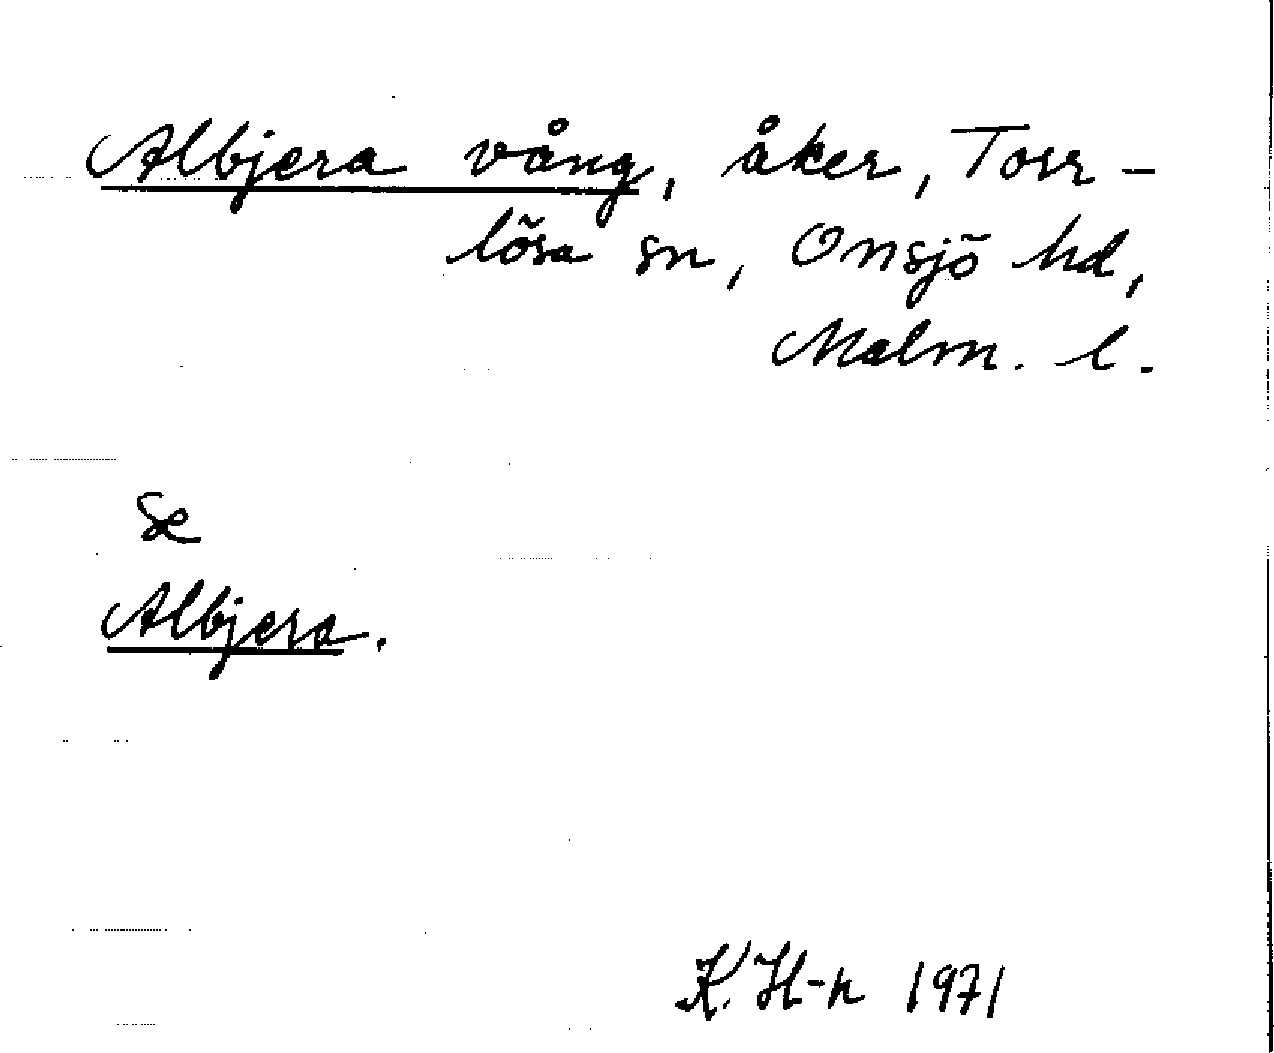 Albjera vång, åker, Torr-
lösa sn, Onsjö hd,
Malm. l.
Se
Albjera.
K. H-n 1971